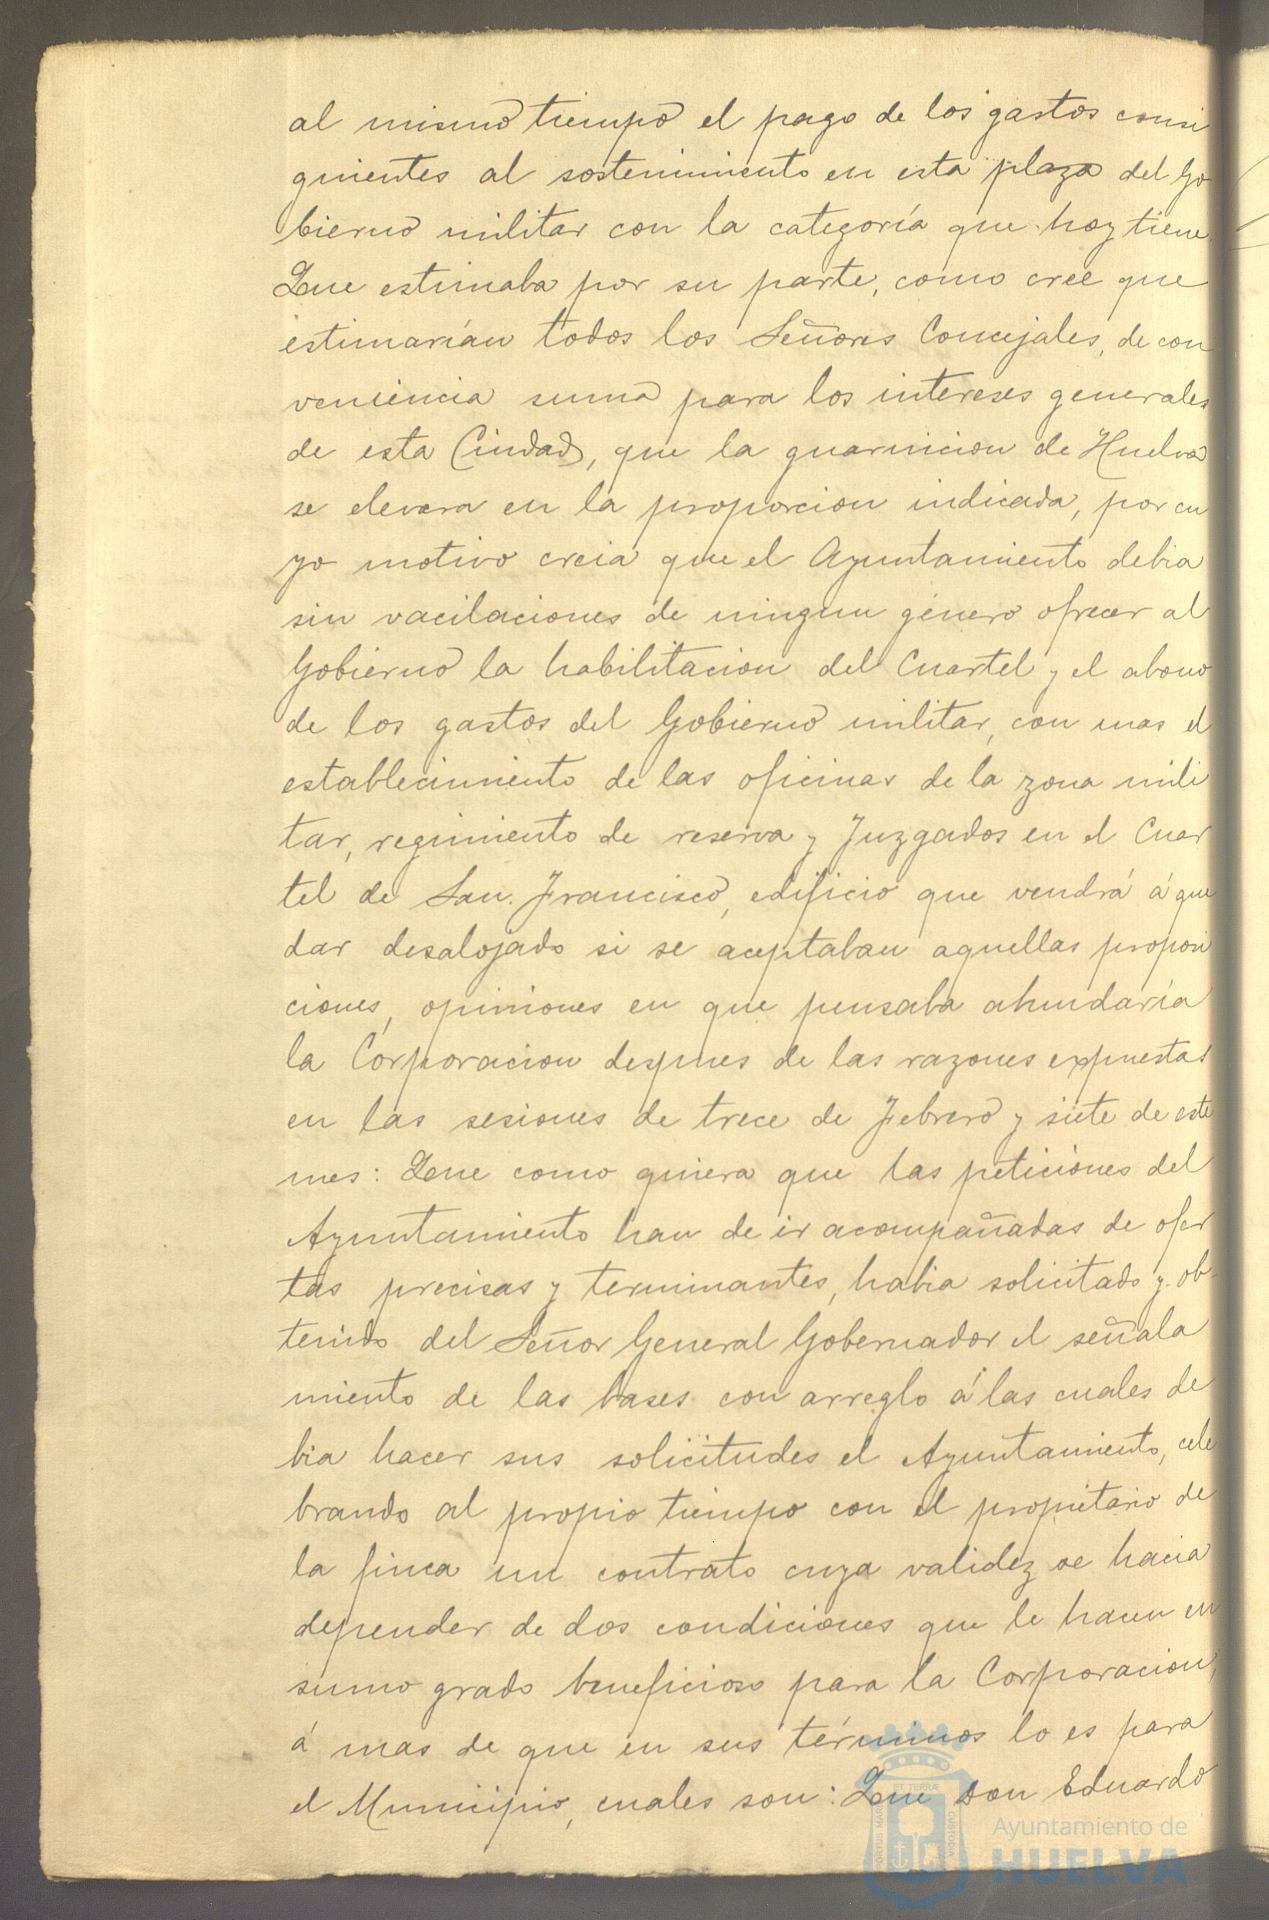 al mismo tiempo el pago de los gastos consi
guientes al sostenimiento en esta plaza del Go
bierno militar con la categoría que hoy tiene.
Que estimaba por su parte, como cree que
estimarían todos los Señores Concejales, de con
veniencia suma para los intereses generales
de esta Ciudad, que la guarnicion de Huelva
se elevara en la proporcion indicada, por cu
yo motivo creia que el Ayuntamiento debia
sin vacilaciones de ningun género ofrecer al
Gobierno la habilitacion del Cuartel y el abono
de los gastos del Gobierno militar, con mas el
establecimiento de las oficinas de la zona mili
tar, regimiento de reserva y Juzgados en el Cuar
tel de San Francisco, edificio que vendrá á que
dar desalojado si se aceptaban aquellas proposi
ciones, opiniones en que pensaba abundaría
la Corporacion despues de las razones expuestas
en las sesiones de trece de Febrero y siete de este
mes: Que como quiera que las peticiones del
Ayuntamiento han de ir acompañadas de ofer
tas precisas y terminantes, habia solicitado y ob-
tenido del Señor General Gobernador el señala
miento de las bases con arreglo á las cuales de
bia hacer sus solicitudes el Ayuntamiento, cele
brando al propio tiempo con el propietario de
la finca un contrato cuya validez se hacia
depender de dos condiciones que le hacen en
sumo grado beneficioso para la Corporacion,
á mas de que en sus términos lo es para
el Municipio, cuales son: Que Don Eduardo
Ayuntamiento de
HUELVA